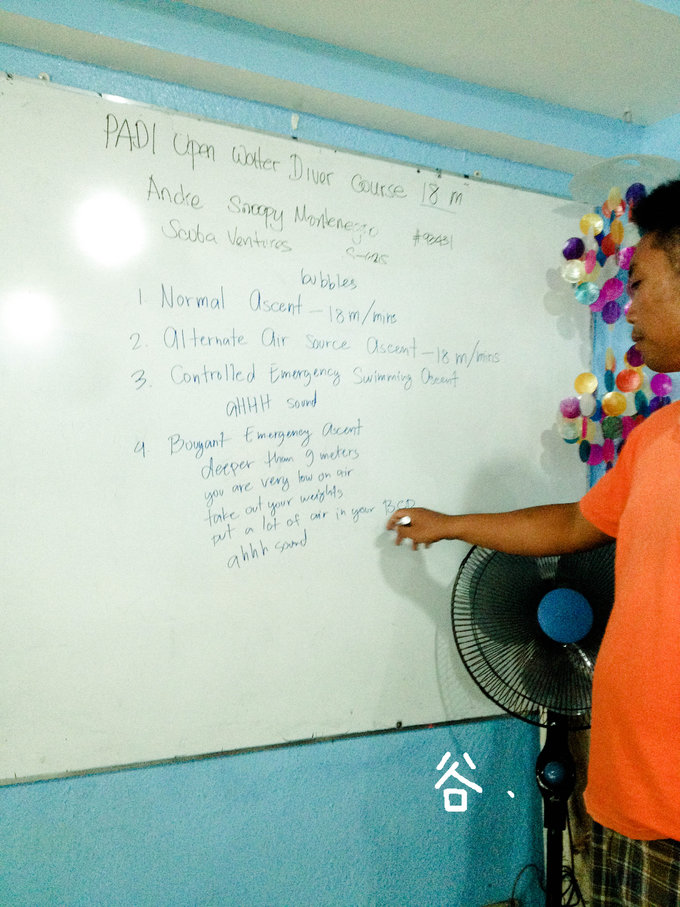 PADI Open Watter Diver Course 18 m
Andre Snoopy Montenegro
Scuba Ventures #93431
bubbles
1 Normal Ascent - 18 m/mins
2. Alternate Air Source Ascent - 18 m/mins
3. Controlled Emergency Swimming Ascent
aHHH sound
4 Bouyant Emergency Ascent
deeper than 9 meters
you are very low on air
take out your weights
put a lot of air in your BCD
ahhh sound
谷、